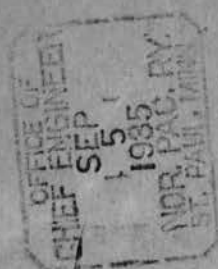 OFFICE OF
CHIEF ENGINEER
SEP
5
1935
NOR. PAC. RY.
ST. PAUL, MINN.